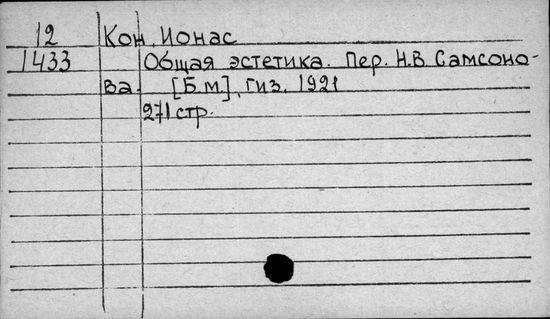 12 Кон, Ионас
1433 Общая эстетика. Пер. Н.В. Самсоно-
ва. [Б.м.], Гиз. 1921
271 стр.